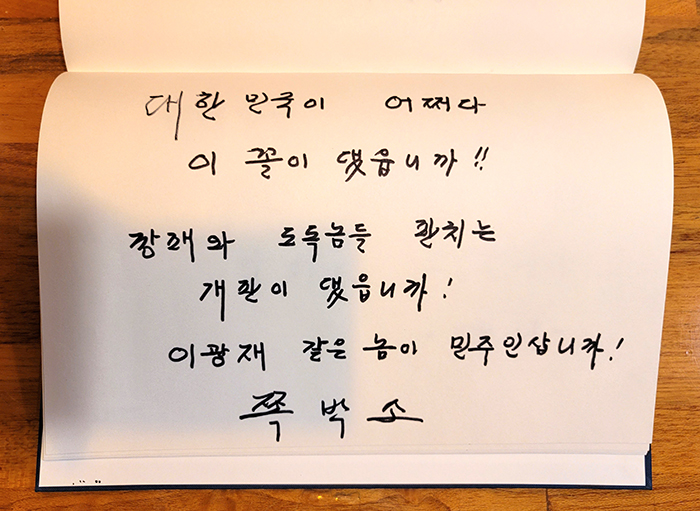 대한민국이 어쩌다
이 꼴이 됐읍니까!!
깡패와 도둑놈들 판치는
개판이 됐읍니까!
이광재 같은 놈이 민주인삽니까!
쪽박소